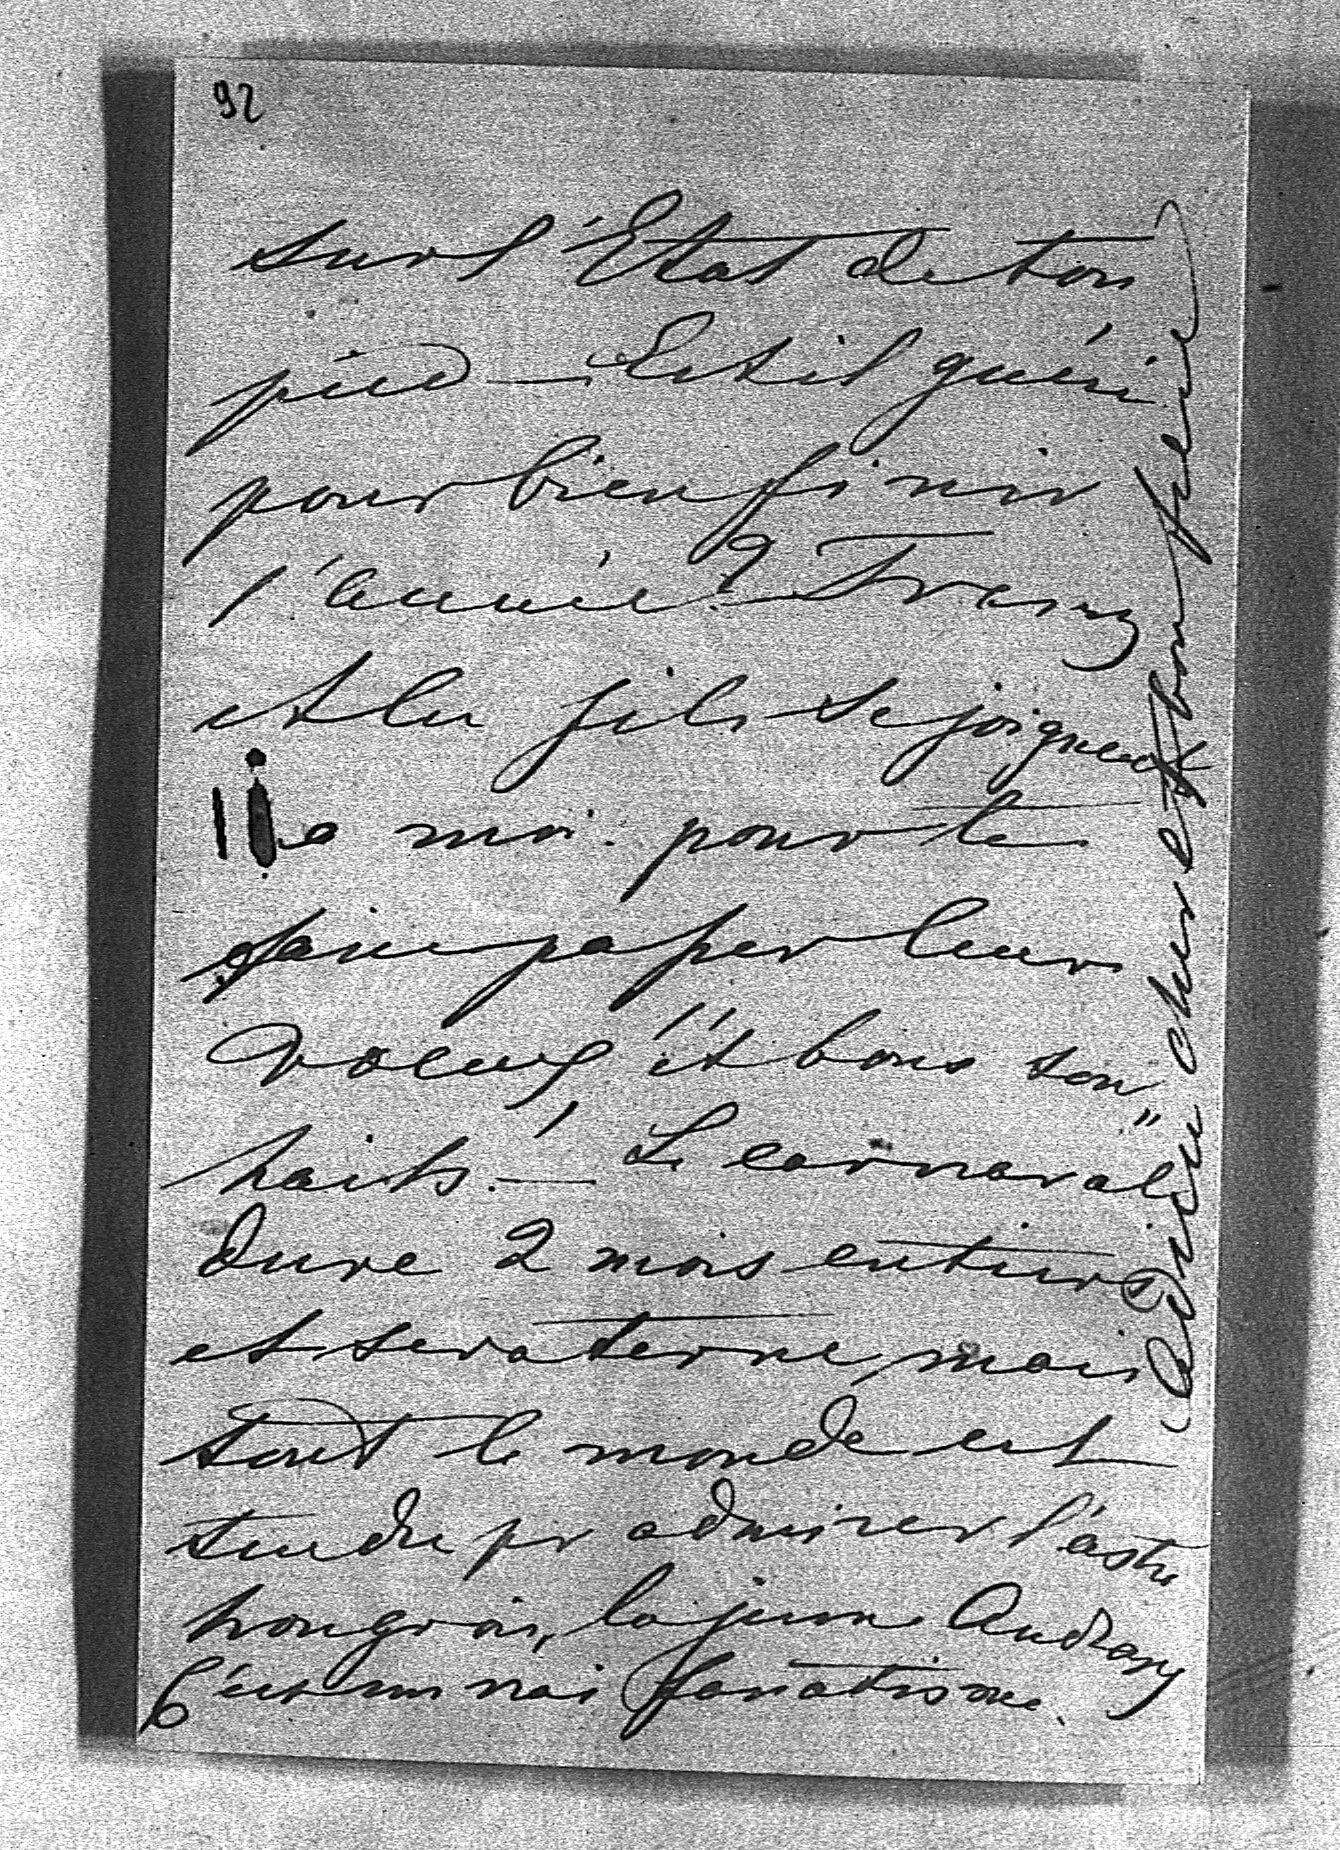 92
sur l'Etat de ton
pied — Est il guéri
pour bien finir
l'année? — Franz
et les fils se joignent
à moi pour te
faire passer leurs
voeux et bons sou"
haits! — Le carnaval
dure 2 mois entiers
et sera terne, mais
tout le monde est
tendu pr admirer l'astre
hongrois, la jeune Andrassy
C'est un vrai fanatisme.
Adieu cher et bon frère